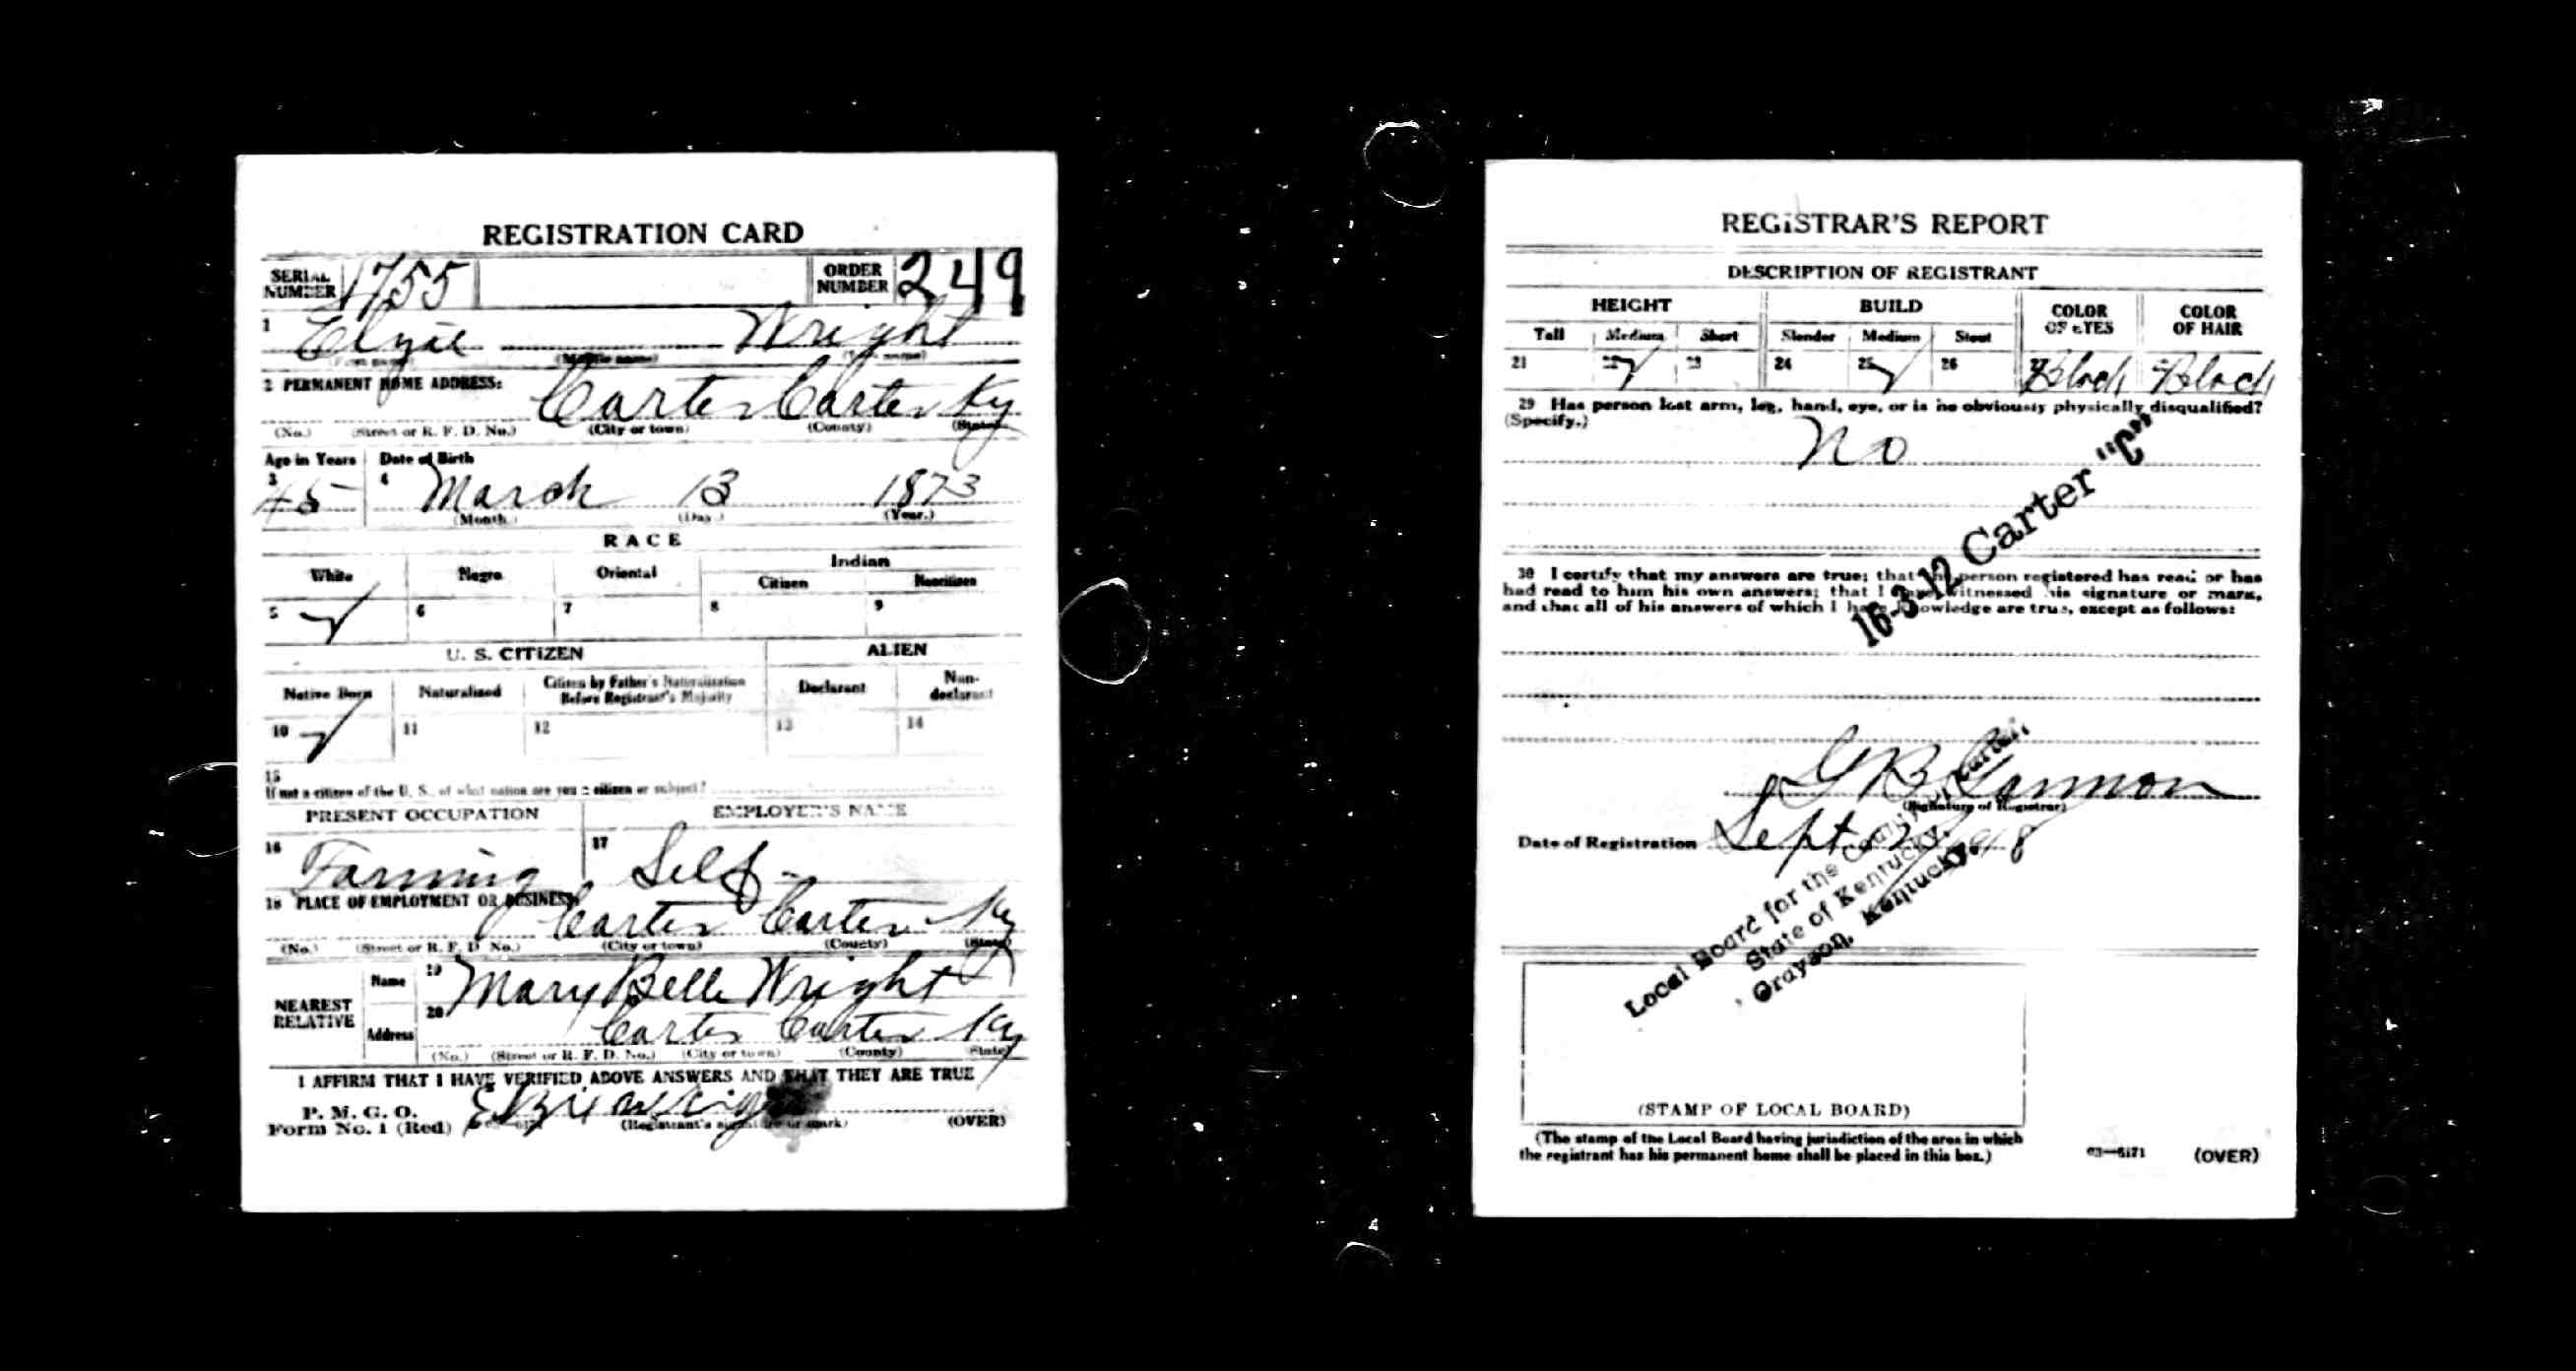 REGISTRATION CARD
SERIAL NUMBER 1755 ORDER NUMBER 249
1 Elzie Wright
(First name) (Middle name) (Last name)
2 PERMANENT HOME ADDRESS:
Carter Carter Ky
(No.) (Street or R. F. D. No.) (City or town) (County) (State)
Age in Years Date of Birth
3 45 4 March 13 1873
(Month.) (Day.) (Year.)
RACE
White Negro Oriental Indian
Citizen Noncitizen
5 ✓ 6 7 8 9
U. S. CITIZEN ALIEN
Native Born Naturalized Citizen by Father's Naturalization Before Registrant's Majority Declarant Non-declarant
10 ✓ 11 12 13 14
15
If not a citizen of the U. S., of what nation are you a citizen or subject?
PRESENT OCCUPATION EMPLOYER'S NAME
16 Farming 17 Self
18 PLACE OF EMPLOYMENT OR BUSINESS
Carter Carter Ky
(No.) (Street or R. F. D. No.) (City or town) (County) (State)
NEAREST RELATIVE
Name 19 Mary Belle Wright
Address 20 Carter Carter Ky
(No.) (Street or R. F. D. No.) (City or town) (County) (State)
I AFFIRM THAT I HAVE VERIFIED ABOVE ANSWERS AND THAT THEY ARE TRUE
P. M. G. O.
Form No. 1 (Red) Elzie
(Registrant's signature or mark) (OVER)
REGISTRAR'S REPORT
DESCRIPTION OF REGISTRANT
HEIGHT BUILD COLOR OF EYES COLOR OF HAIR
Tall Medium Short Slender Medium Stout
21 22 ✓ 23 24 25 ✓ 26 27 Black Black
29 Has person lost arm, leg, hand, eye, or is he obviously physically disqualified?
(Specify.)
No
16-3-12 Carter "C"
30 I certify that my answers are true; that the person registered has read or has
had read to him his own answers; that I have witnessed his signature or mark,
and that all of his answers of which I have knowledge are true, except as follows:
(Signature of Registrar)
Date of Registration Sept 1918
Local Board for the County of Carter,
State of Kentucky,
Grayson, Kentucky.
(STAMP OF LOCAL BOARD)
(The stamp of the Local Board having jurisdiction of the area in which
the registrant has his permanent home shall be placed in this box.)
03—6171 (OVER)